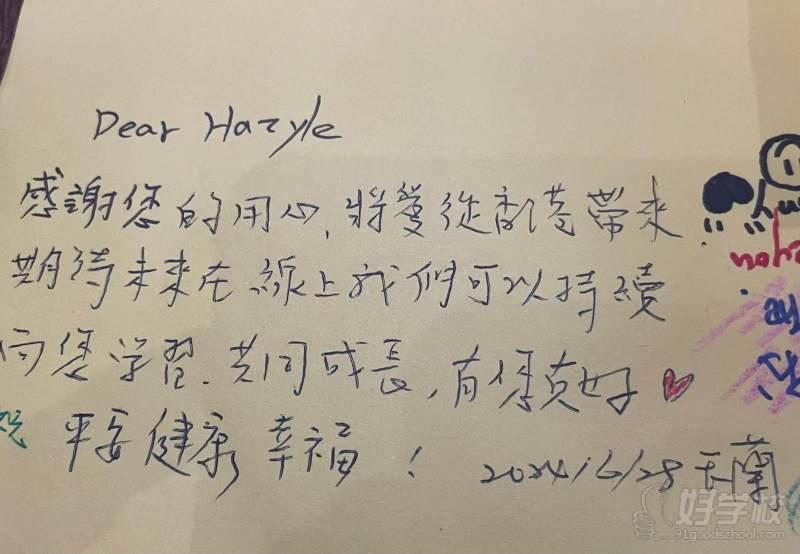 Dear Hazyle
感謝您的用心,將愛從香港帶來
期待未來在線上我們可以持續
向您学習.共同成長,有您真好
祝 平安健康 幸福 !
2024/6/28 天蘭
好学校
91goodschool.com